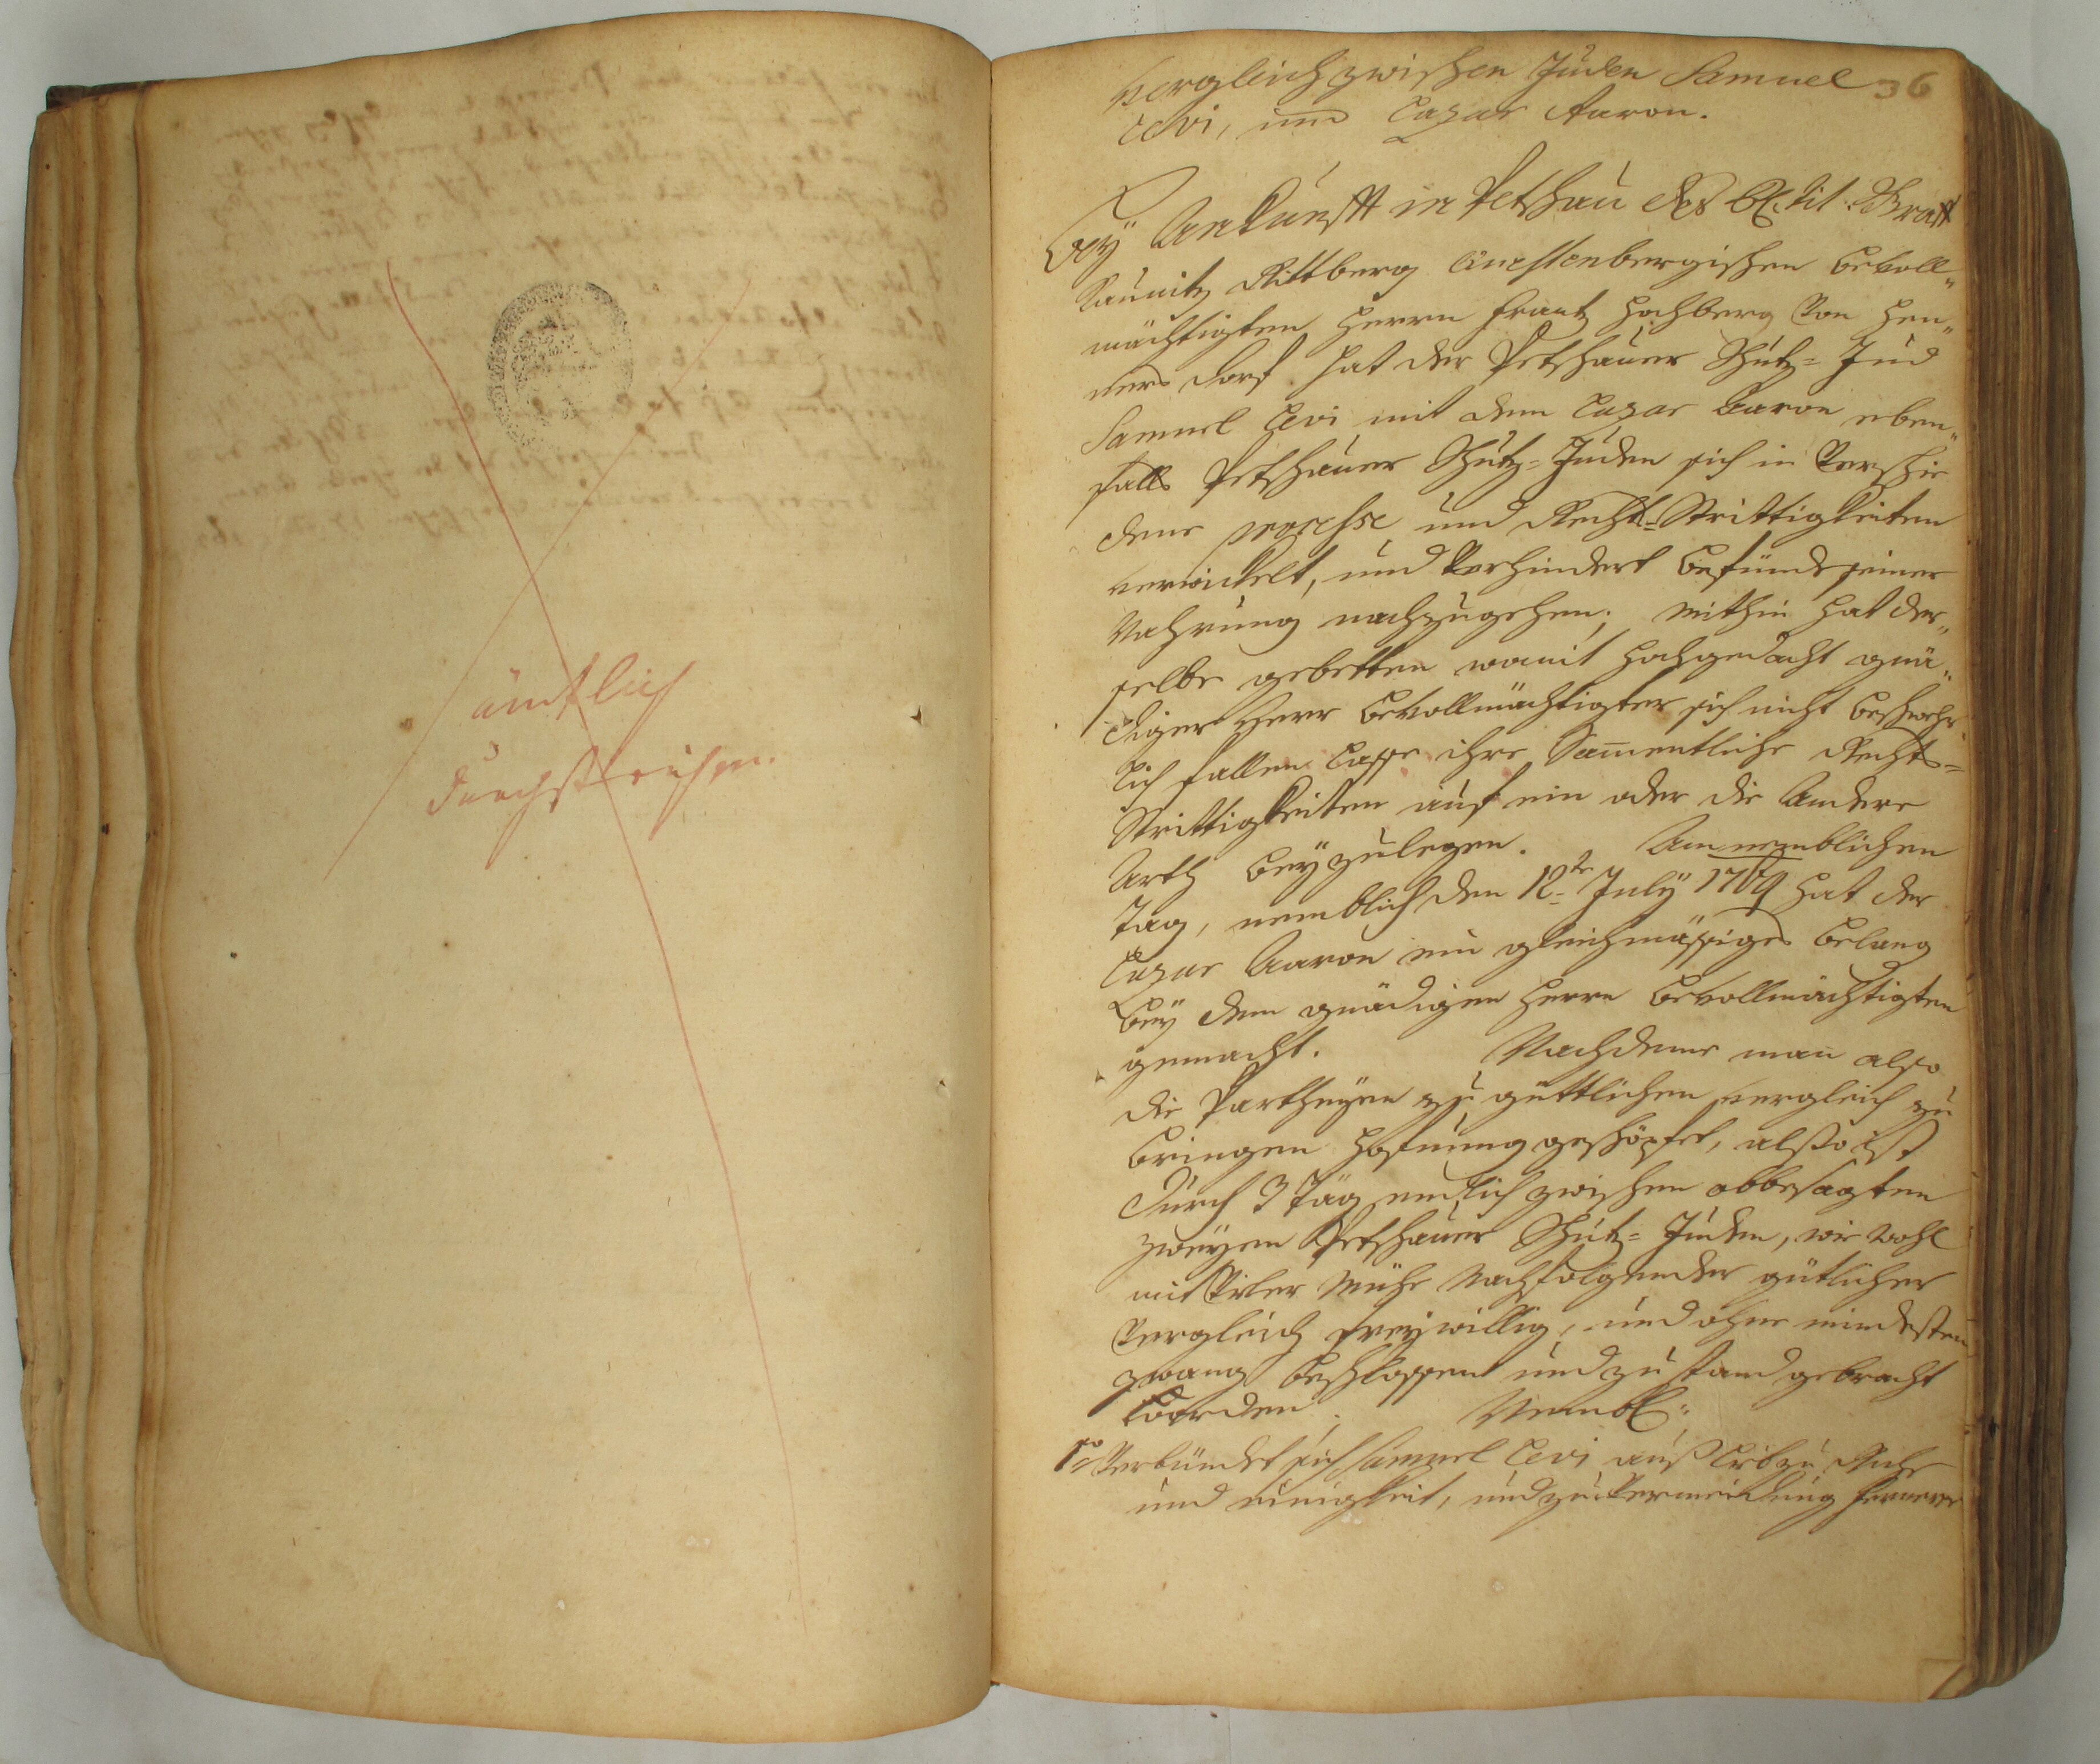 ämtlich
durchstrichen.
36
Vergleich zwischen Juden Samuel
Levi, und Lazar Aaron.
Bey Ankunfft in Petschau des Tit: Graff
Kaunitz Rittberg Questenbergischen bevoll„
mächtigten Herrn Frantz Hochberg von Hen„
ners dorf hat der Petschauer Schutz=Jud
Samuel Levi mit dem Lazar Aaron eben„
falls Petschauer Schutz=Juden sich in verschie
dene processe und Rechts=Strittigkeiten
verwickelt, und verhindert befünde seiner
Nahrung nachzugehen; mithin hat der„
selbe gebetten womit hochgedacht gnä„
diger Herr bevollmächtigter sich nicht beschwehr„
lich fallen lasse ihre Samentliche Rechts=
Strittigkeiten auf ein oder die andere
Arth beyzulegen. Am nemblichen
Tag, nemblich den 12te July 1769 hat der
Lazar Aaron ein gleichmässiges belang
bey dem gnädigen Herrn bevollmächtigten
gemacht. Nachdeme man also
die Partheyen zu güttlichen vergleich zu
bringen Hofnung geschöpfet, alsso ist
durch 3 Täg endlich zwischen obbesagten
zweyen Petschauer Schutz=Juden, wie wohl
mit vieler Mühe nachfolgender gütlicher
Vergleich freywillig, und ohne mindesten
zwang beschlossen und zu stand gebracht
worden. Nembl:
1mo Verbündet sich Samuel Levi auß Lieb zu Ruhe
und einigkeit, und zu Vermeidung fernerer